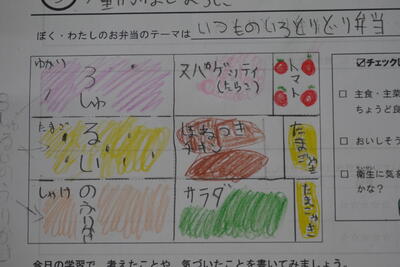 ぼく・わたしのお弁当のテーマは いつものいろどりどり弁当
ゆかり
たまご
しゃけ
3しゅ
るい
のふりかけ
スパゲッティ
(たらこ)
トマト
ほねつき
サラダ
たまごやき
たまごやき
☑チェックし
主食・主菜
ちょうど良
おいしそう
衛生に気を
かな?
今日の学習で、考えたことや、気づいたことを書いてみましょう。